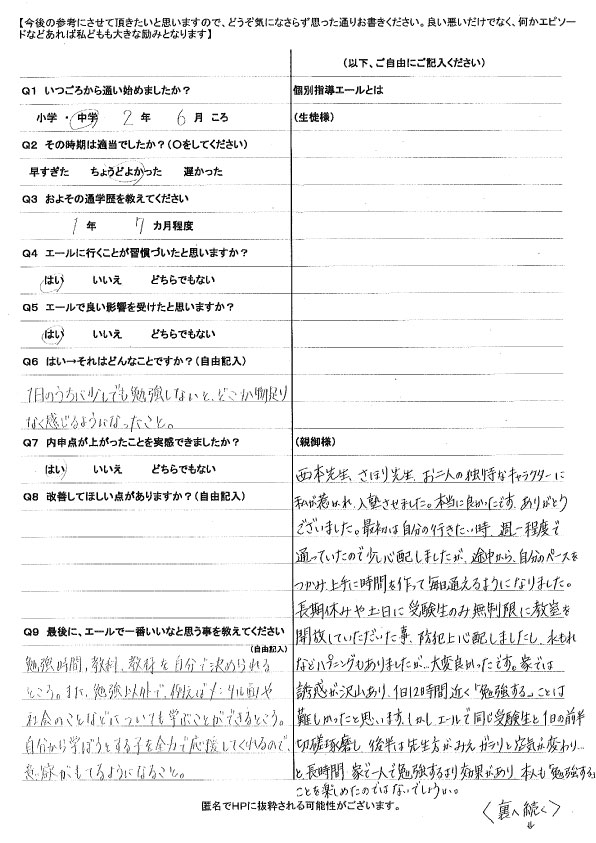 【今後の参考にさせて頂きたいと思いますので、どうぞ気になさらず思った通りお書きください。良い悪いだけでなく、何かエピソー
ドなどあれば私どもも大きな励みとなります】
(以下、ご自由にご記入ください)
Q1 いつごろから通い始めましたか?
小学 ・ 中学 2 年 6 月 ころ
Q2 その時期は適当でしたか?(○をしてください)
早すぎた ちょうどよかった 遅かった
Q3 およその通学歴を教えてください
1 年 7 カ月程度
Q4 エールに行くことが習慣づいたと思いますか?
はい いいえ どちらでもない
Q5 エールで良い影響を受けたと思いますか?
はい いいえ どちらでもない
Q6 はい→それはどんなことですか?(自由記入)
1日のうちに少しでも勉強しないと、どこか物足り
なく感じるようになったこと。
Q7 内申点が上がったことを実感できましたか?
はい いいえ どちらでもない
Q8 改善してほしい点がありますか?(自由記入)
Q9 最後に、エールで一番いいなと思う事を教えてください
(自由記入)
勉強時間、教科、教材を自分で決められる
ところ。また、勉強以外で、例えばメンタル面や
社会のことなどについても学ぶことができるところ。
自分から学ぼうとする子を全力で応援してくれるので、
意欲がもてるようになること。
個別指導エールとは
(生徒様)
(親御様)
西本先生、さほり先生、お二人の独特なキャラクターに
私が惹かれ、入塾させました。本当に良かったです。ありがとう
ございました。最初は自分の行きたい時、週一程度で
通っていたので少し心配しましたが、途中から、自分のペースを
つかみ上手に時間を作って毎日通えるようになりました。
長期休みや土日に受験生のみ無制限に教室を
開放していただいた事、防犯上心配しましたし、水もれ
などハプニングもありましたが…大変良かったです。家では
誘惑が沢山あり、1日12時間近く「勉強する」ことは
難しかったと思います。しかしエールで同じ受験生と1日の前半
切磋琢磨し、後半は先生方がみえガラリと空気が変わり…
と、長時間 家で一人で勉強するより効果があり 本人も「勉強する」
ことを楽しめたのではないでしょうか。
<裏へ続く>
匿名でHPに抜粋される可能性がございます。